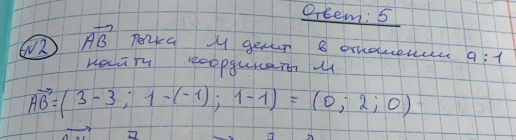 Ответ: 5
№2 AB точка M делит в отношении 9:1
найти координаты M
AB=(3-3; 1-(-1); 1-1) = (0; 2; 0)